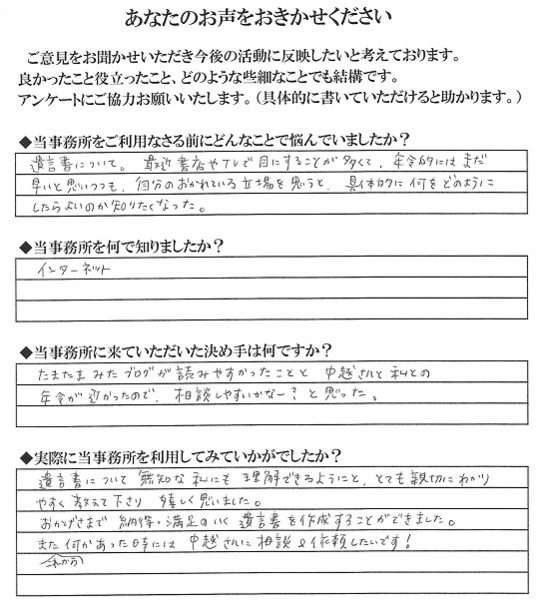 あなたのお声をおきかせください
ご意見をお聞かせいただき今後の活動に反映したいと考えております。
良かったこと役立ったこと、どのような些細なことでも結構です。
アンケートにご協力お願いいたします。（具体的に書いていただけると助かります。）
◆当事務所をご利用なさる前にどんなことで悩んでいましたか？
遺言書について。最近書店やTVで目にすることが多くて、年令的にはまだ
早いと思いつつも、自分のおかれている立場を思うと、具体的に何をどのように
したらよいのか知りたくなった。
◆当事務所を何で知りましたか？
インターネット
◆当事務所に来ていただいた決め手は何ですか？
たまたまみたブログが読みやすかったことと 中越さんと私との
年令が近かったので、相談しやすいかなー？と思った。
◆実際に当事務所を利用してみていかがでしたか？
遺言書について無知な私にも理解できるようにと、とても親切にわかり
やすく教えて下さり 嬉しく思いました。
おかげさまで納得・満足のいく遺言書を作成することができました。
また何かあった時には中越さんに相談&依頼したいです！